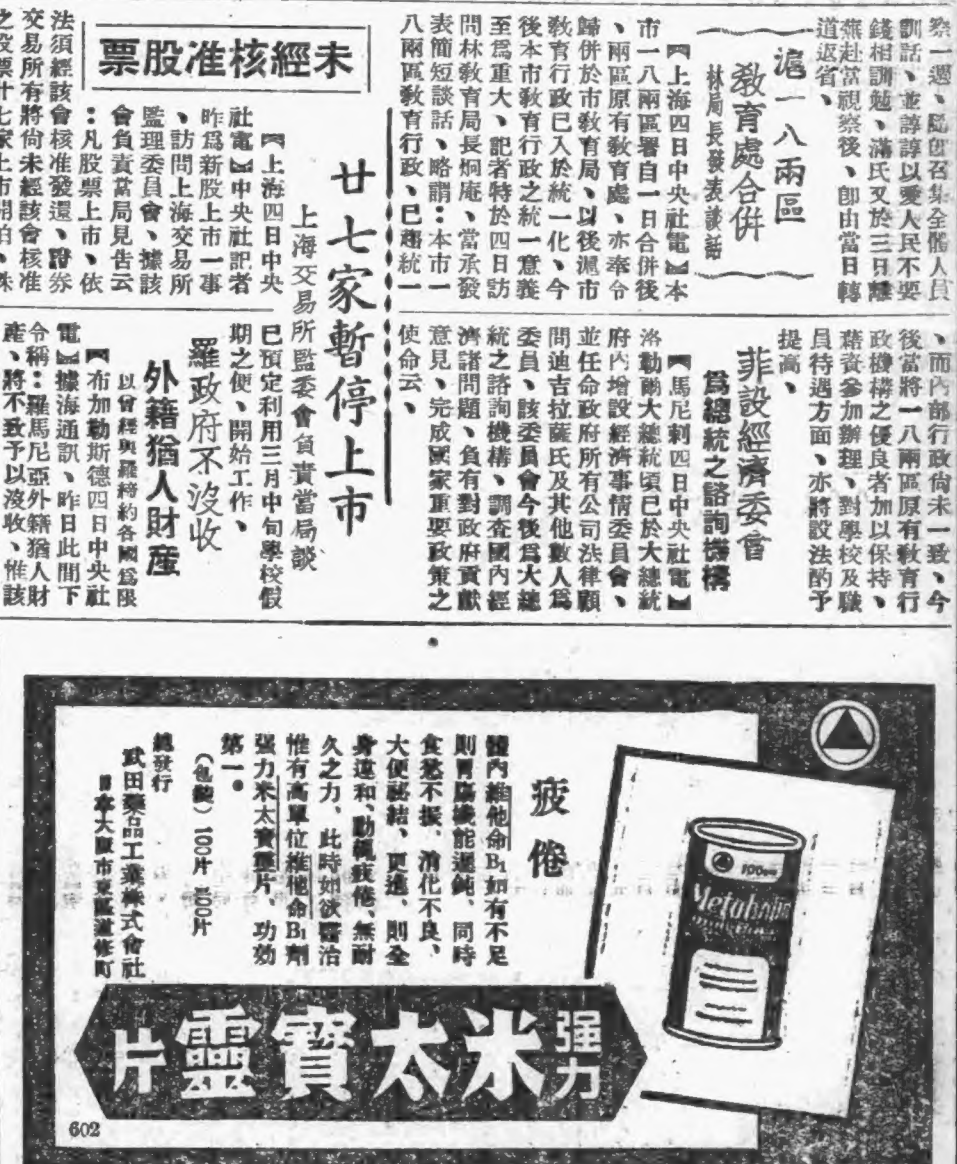 察一週、隨卽召集全體人員
訓話、並諄諄以愛人民不要
錢相訓勉、滿氏又於三日離
蕪赴當視察後、卽由當日轉
道返省、
滬一八兩區
敎育處合併
林局長發表談話
【上海四日中央社電】本
市一八兩區署自一日合併後
、兩區原有敎育處、亦奉令
歸併於市敎育局、以後滬市
敎育行政已入於統一化、今
後本市敎育行政之統一意義
至爲重大、記者特於四日訪
問林敎育局長炯庵、當承發
表簡短談話、略謂：本市一
八兩區敎育行政、已趨統一
、而內部行政尙未一致、今
後當將一八兩區原有敎育行
政機構之優良者加以保持、
藉資參加辦理、對學校及職
員待遇方面、亦將設法酌予
提高、
菲設經濟委會
爲總統之諮詢機構
【馬尼剌四日中央社電】
洛勒爾大總統頃已於大總統
府內增設經濟事情委員會、
並任命政府所有公司法律顧
問迪吉拉薩氏及其他數人爲
委員、該委員會今後爲大總
統之諮詢機構、調查國內經
濟諸問題、負有對政府貢獻
意見、完成國家重要政策之
使命云、
未經核准股票
廿七家暫停上市
上海交易所監委會負責當局談
【上海四日中央
社電】中央社記者
昨爲新股上市一事
、訪問上海交易所
監理委員會、據該
會負責當局見告云
：凡股票上市、依
法須經該會核准發還、證券
交易所有將尙未經該會核准
之股票廿七家上市開拍、殊
已預定利用三月中旬學校假
期之便、開始工作、
羅政府不沒收
外籍猶人財產
以曾經與羅締約各國爲限
【布加勒斯德四日中央社
電】據海通訊、昨日此間下
令稱：羅馬尼亞外籍猶人財
產、將不致予以沒收、惟該
疲倦
體內維他命B₁如有不足
則胃腸機能遲鈍、同時
食慾不振、消化不良、
大便祕結、更進、則全
身違和、動輒疲倦、無耐
久之力、此時如欲醫治
惟有高單位維他命B₁劑
强力米太寶靈片、功效
第一。
(包裝) 100片 500片
總發行
武田藥品工業株式會社
日本大阪市東區道修町
100
Metabolin
强力
米太寶靈片
602